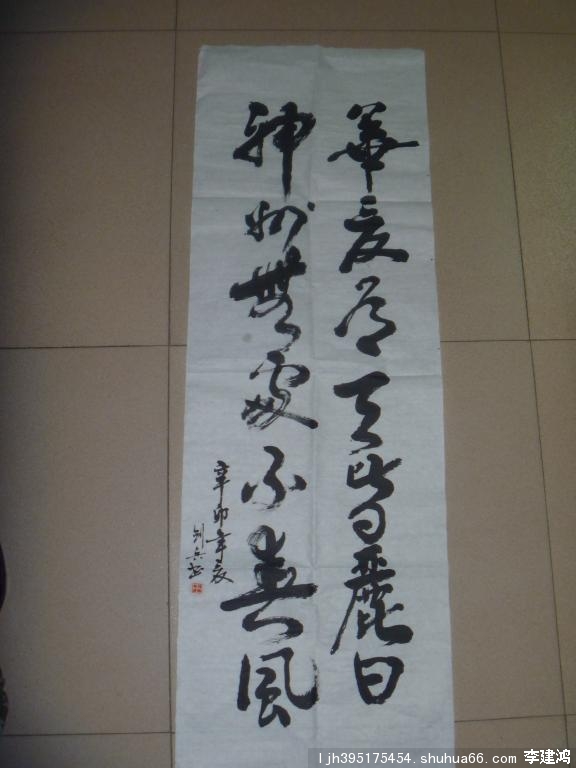 華夏有天皆麗日
神州無處不春風
辛卯年夏
ljh395175454. shuhua66.com 李建鸿